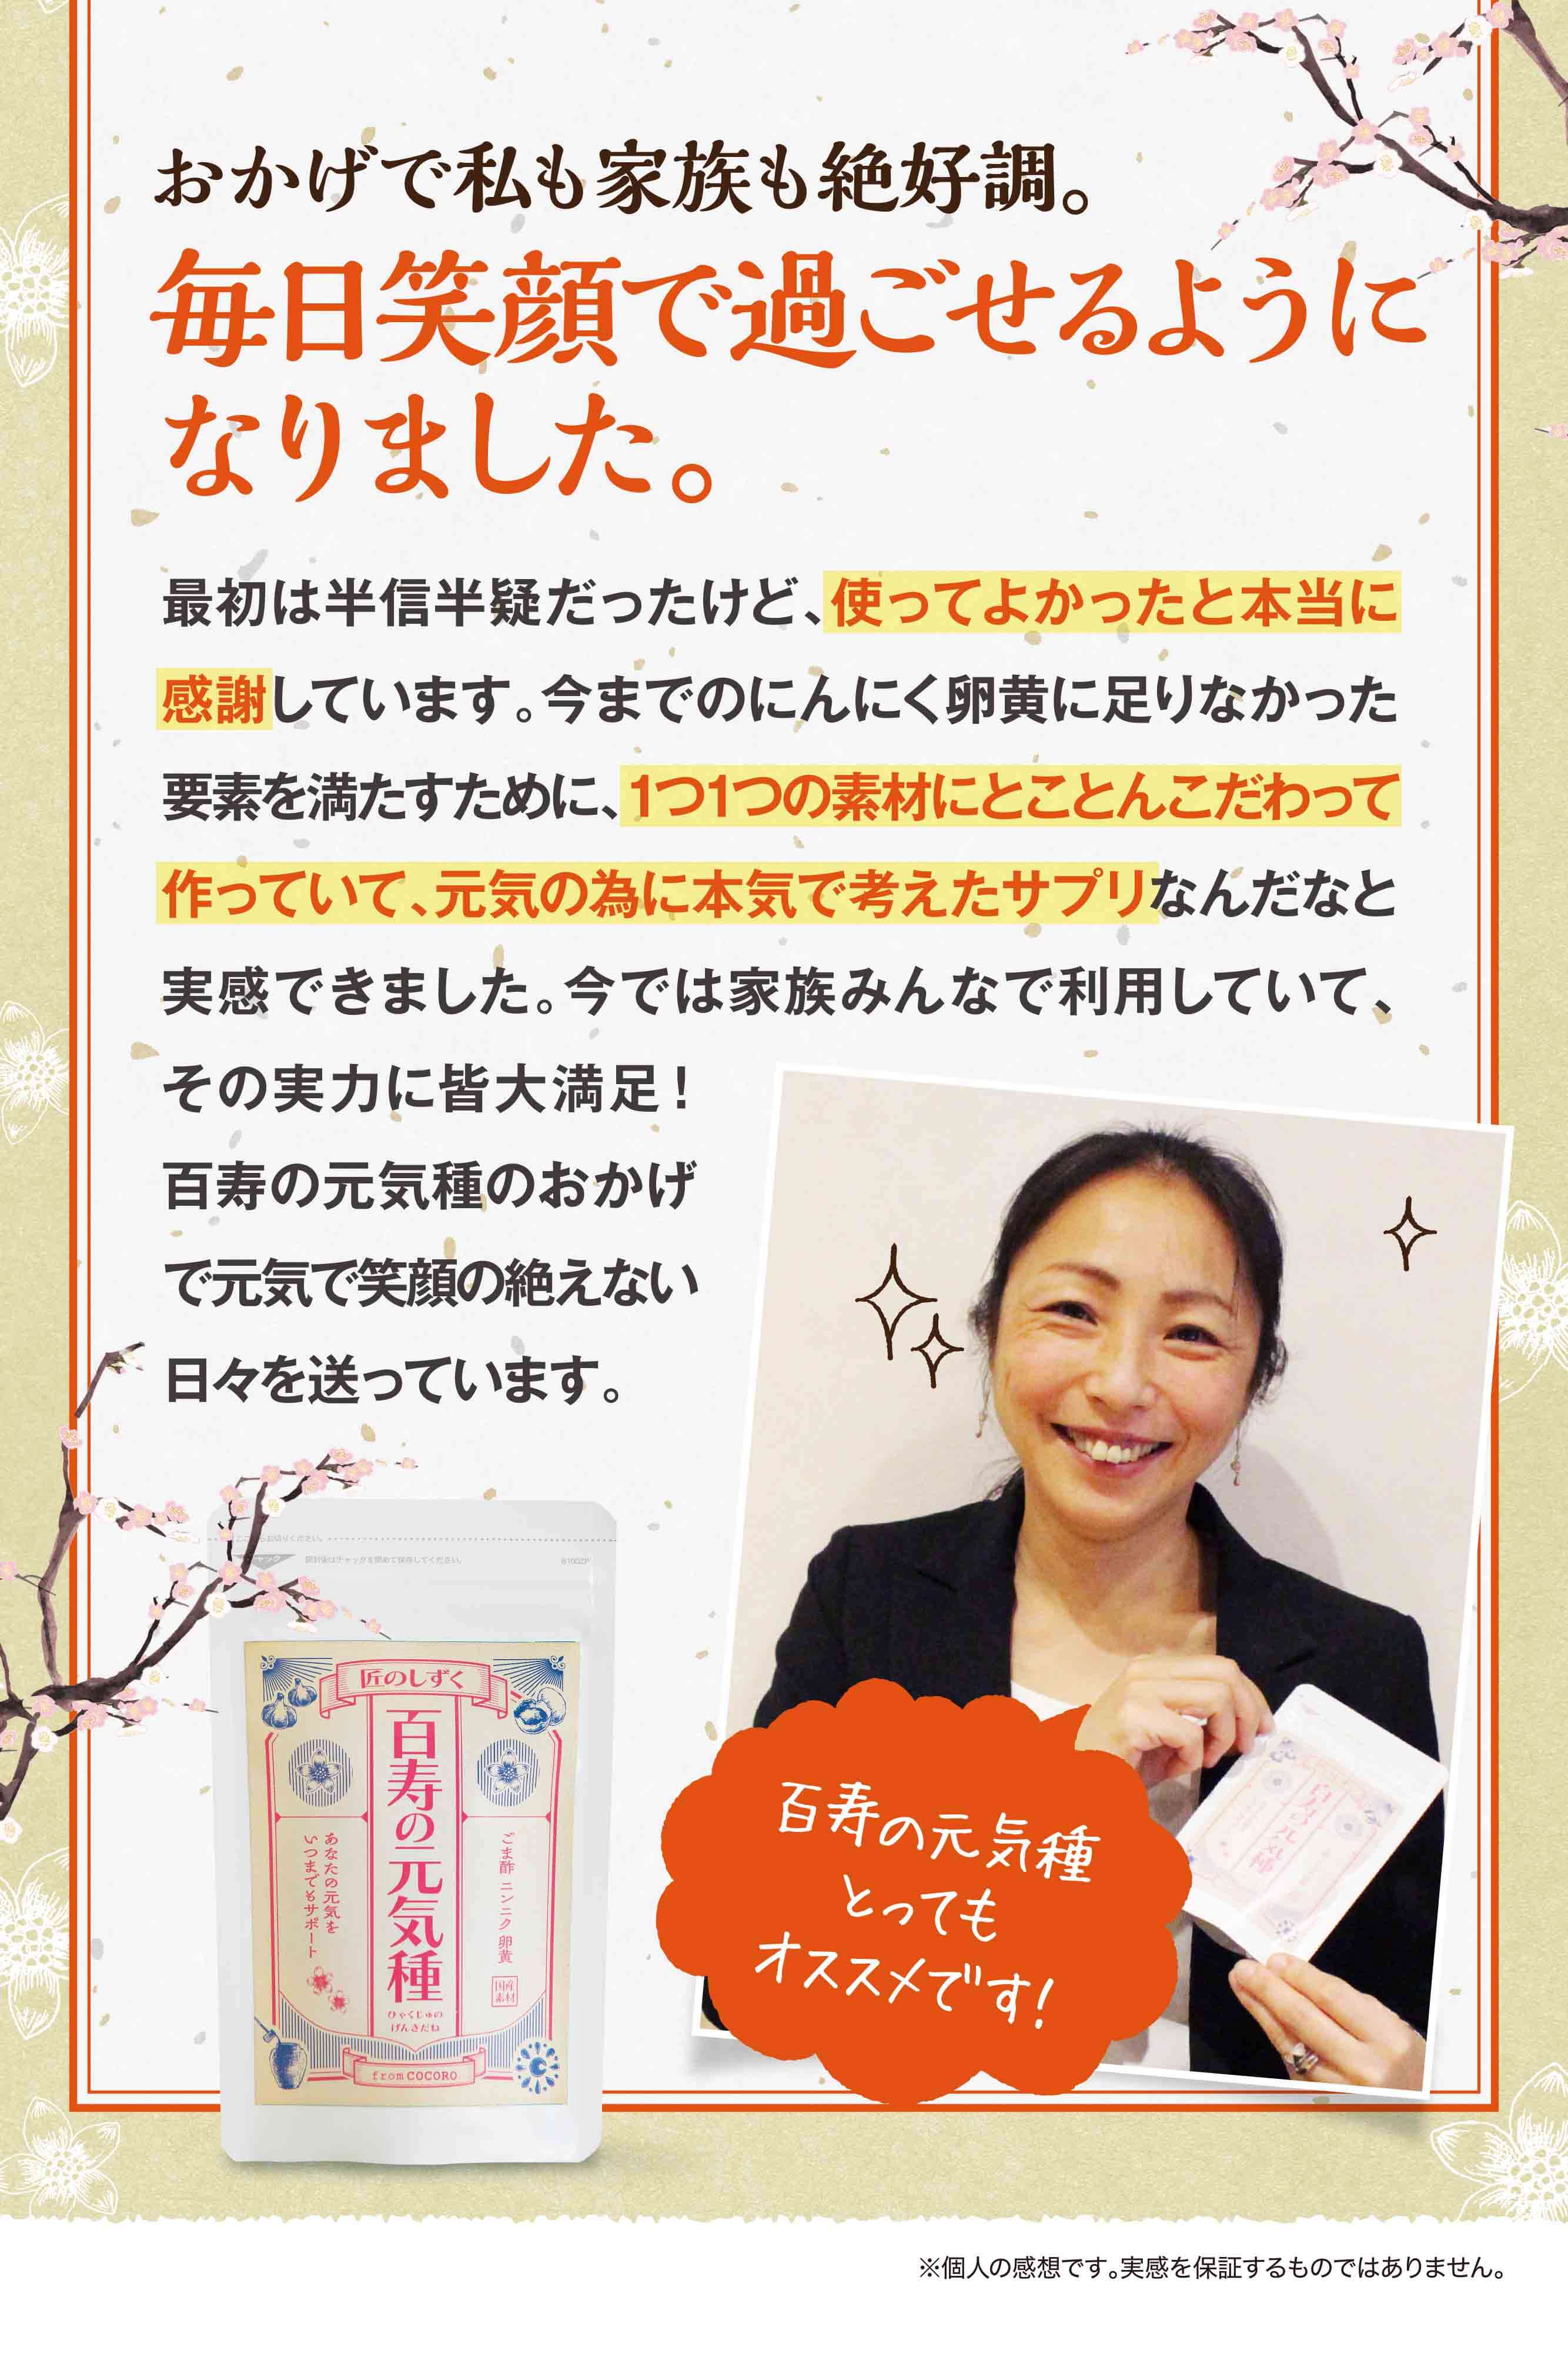 おかげで私も家族も絶好調。
毎日笑顔で過ごせるように
なりました。
最初は半信半疑だったけど、使ってよかったと本当に
感謝しています。今までのにんにく卵黄に足りなかった
要素を満たすために、1つ1つの素材にとことんこだわって
作っていて、元気の為に本気で考えたサプリなんだなと
実感できました。今では家族みんなで利用していて、
その実力に皆大満足!
百寿の元気種のおかげ
で元気で笑顔の絶えない
日々を送っています。
お切りください。
開封後はチャックを閉めて保存してください。
匠のしずく
百寿の元気種
ひゃくじゅの
げんきだね
ごま酢 ニンニク 卵黄
国産
素材
あなたの元気を
いつまでもサポート
from COCORO
百寿の元気種
百寿の元気種
とっても
オススメです!
※個人の感想です。実感を保証するものではありません。